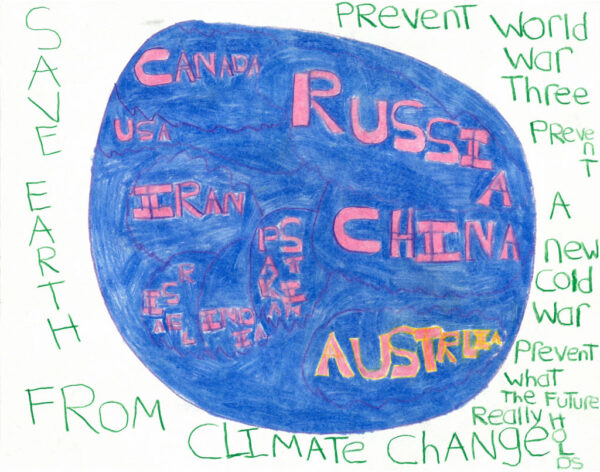 SAVE EARTH
FROM CLIMATE CHANGE
PREVENT World
War
Three
PREVENT
A
new
Cold
war
Prevent
what
The Future
Really HOLDS
CANADA
RUSSIA
USA
IRAN
CHINA
PAKISTAN
ISRAEL
INDIA
AUSTRALIA